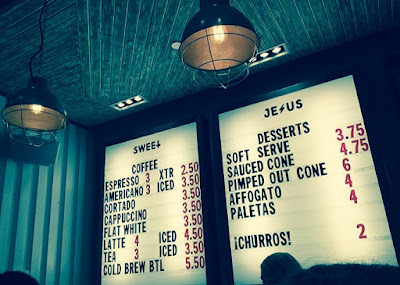 SWEET
COFFEE
ESPRESSO 3 XTR 2.50
AMERICANO 3 ICED 3.50
CORTADO 3.50
CAPPUCCINO 3.50
FLAT WHITE 3.50
LATTE 4 ICED 4.50
TEA 3 ICED 3.50
COLD BREW BTL 5.50
JESUS
DESSERTS
SOFT SERVE 3.75
SAUCED CONE 4.75
PIMPED OUT CONE 6
AFFOGATO 4
PALETAS 4
¡CHURROS! 2